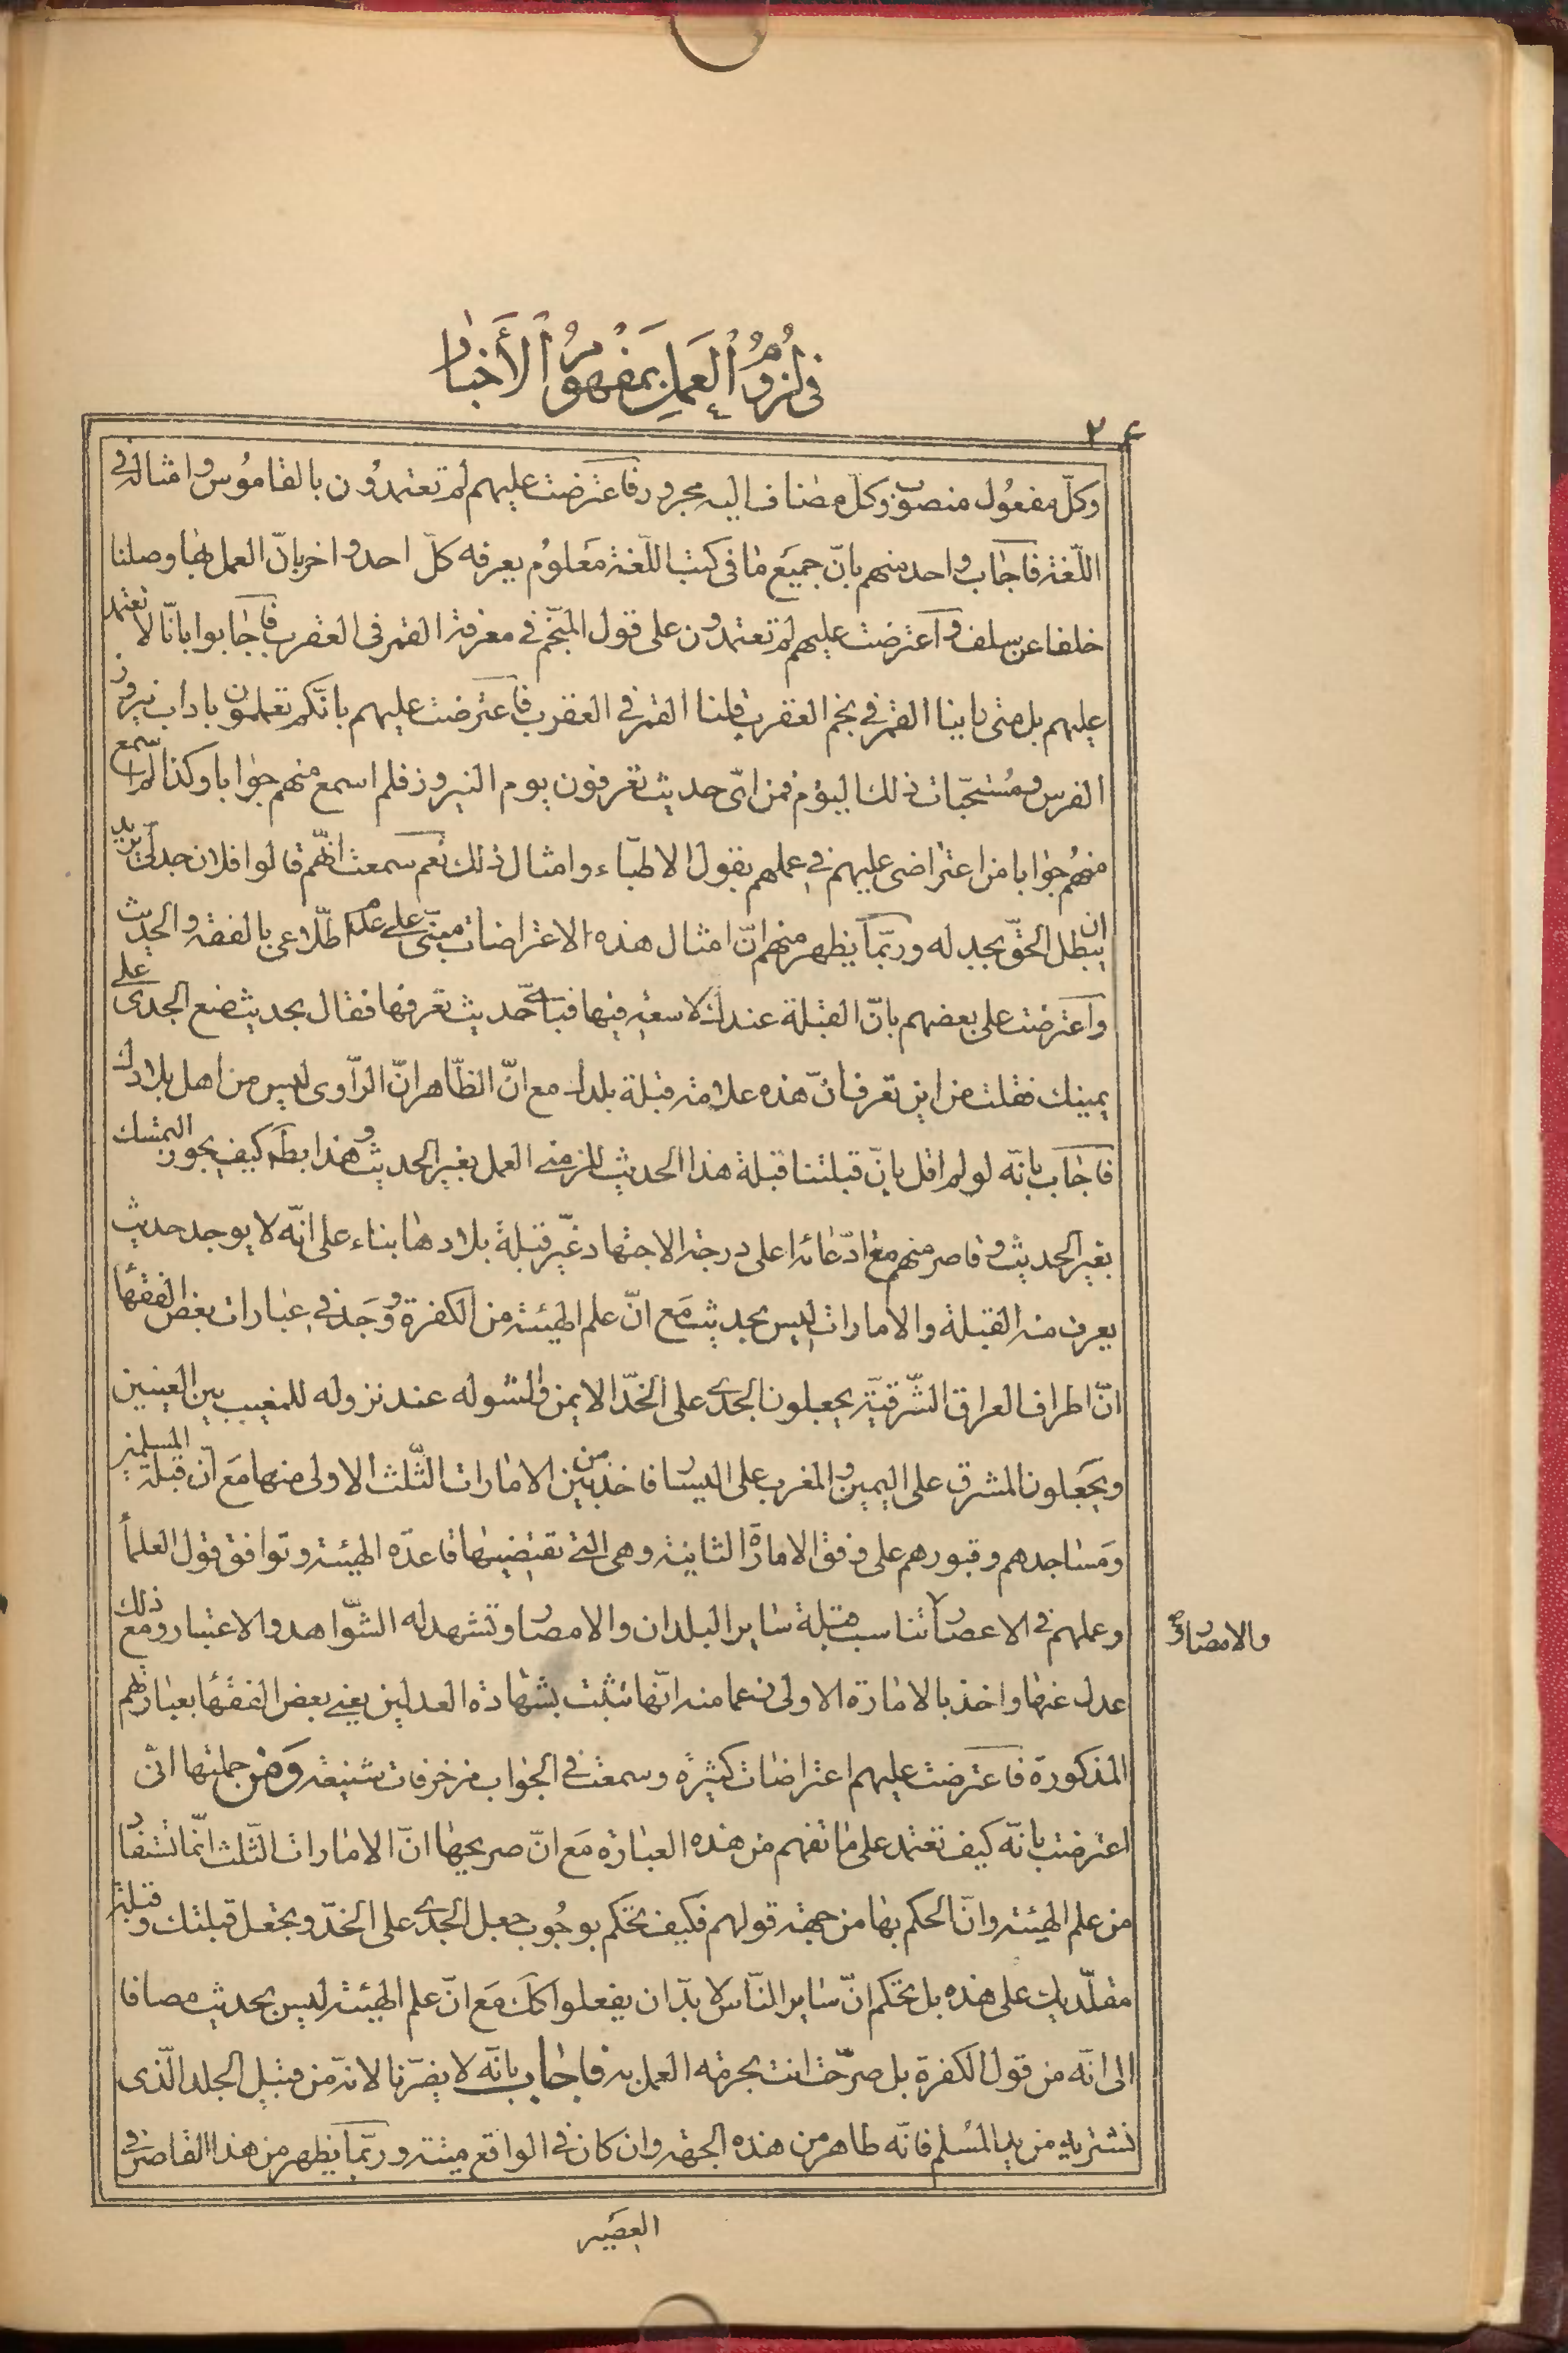 فی لزوم العمل بمفهوم الأخبار
۲۴
وكلّ مفعول منصوب وكلّ مضاف اليه مجرور فاعترضت عليهم لم تعتمدون بالقاموس وامثاله في
اللّغة فاجاب واحد منهم بانّ جميع ما في كتب اللّغة معلوم يعرفه كلّ احد واخر بانّ العمل بها وصلنا
خلفا عن سلف واعترضت عليهم لم تعتمدون على قول المنجّم في معرفة القمر في العقرب فاجابوا بانّا لا نعتمد
عليهم بل متى راينا القمر في نجم العقرب قلنا القمر في العقرب فاعترضت عليهم بانّكم تعلمون باداب نيروز
الفرس ومستحبّات ذلك اليوم فمن ايّ حديث تعرفون يوم النيروز فلم اسمع منهم جوابا وكذا لم اسمع
منهم جوابا من اعتراضى عليهم في عملهم بقول الاطبّاء وامثال ذلك نعم سمعت انّهم قالوا فلان جدلىّ يريد
ان يبطل الحقّ بجدله وربّما يظهر منهم انّ امثال هذه الاعتراضات مبنىّ على عدم اطّلاعى بالفقه والحديث
واعترضت على بعضهم بانّ القبلة عندك لا سعة فيها فباىّ حديث تعرفها فقال بحديث ضع الجدى على
يمينك فقلت من اين تعرف انّ هذه علامة قبلة بلدك مع انّ الظّاهر انّ الرّاوى ليس من اهل بلادك
فاجاب بانّه لو لم اقل بانّ قبلتنا قبلة هذا الحديث للزمنى العمل بغير الحديث وهذا بط كيف يجوز التمسّك
بغير الحديث وقاصر منهم مع ادّعائه اعلى درجة الاجتهاد غيّر قبلة بلادها بناء على انّه لا يوجد حديث
يعرف منه القبلة والامارات ليس بحديث مع انّ علم الهيئة من الكفرة ووجد في عبارات بعض الفقها
انّ اطراف العراق الشّرقيّة يجعلون الجدى على الخدّ الايمن والشولة عند نزوله للمغيب بين العينين
ويجعلون المشرق على اليمين والمغرب على اليسار فاخذ من بين الامارات الثّلث الاولى منها مع انّ قبلة المسلمين
ومساجدهم وقبورهم على وفق الامارة الثانية وهى التى تقتضيها قاعدة الهيئة وتوافق قول العلمآ
وعملهم في الاعصار تناسب قبلة ساير البلدان والامصار وتشهد له الشّواهد والاعتبار ومع ذلك
والامصار
عدل عنها واخذ بالامارة الاولى زعما منه انّها تثبت بشهادة العدلين يعنى بعض الفقها بعبارتهم
المذكورة فاعترضت عليهم اعتراضات كثيرة وسمعت في الجواب مزخرفات شنيعة ومن جملتها انّى
اعترضت بانّه كيف تعتمد على ما تفهم من هذه العبارة مع انّ صريحها انّ الامارات الثّلث انّما تستفاد
من علم الهيئة وانّ الحكم بها من جهة قولهم فكيف تحكم بوجوب جعل الجدى على الخدّ وتجعل قبلتك وقبلة
مقلّديك على هذه بل تحكم انّ ساير النّاس لا بدّ ان يفعلوا كك مع انّ علم الهيئة ليس بحديث مضافا
الى انّه من قول الكفرة بل صرّحت انت بحرمة العمل به فاجاب بانّه لا يضرّنا لانّه من قبيل الجلد الّذى
نشتريه من يد المسلم فانّه طاهر من هذه الجهة وان كان في الواقع ميتة وربّما يظهر من هذا القاصر في
العصير